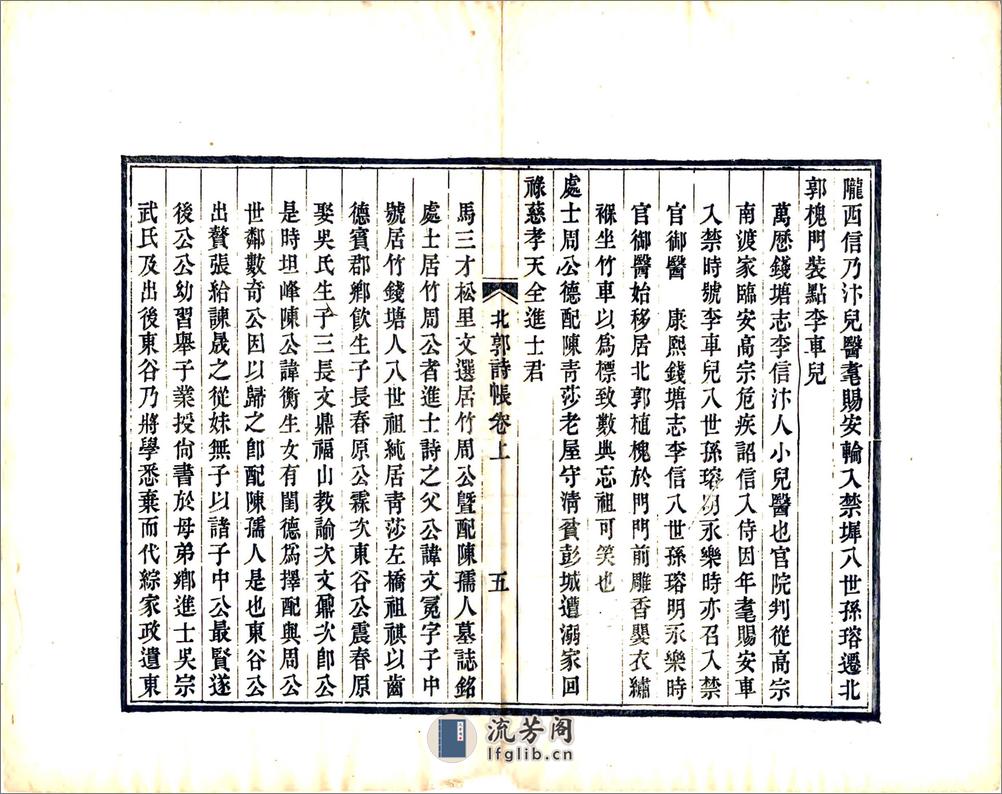 隴西信乃汴兒醫耄賜安輪入禁墀八世孫瑢遷北
郭槐門裝點李車兒
萬歷錢塘志李信汴人小兒醫也官院判從高宗
南渡家臨安高宗危疾詔信入侍因年耄賜安車
入禁時號李車兒八世孫瑢明永樂時亦召入禁
官御醫　康熙錢塘志李信八世孫瑢明永樂時
官御醫始移居北郭植槐於門門前雕香嬰衣繡
褓坐竹車以為標致數典忘祖可笑也
處士周公德配陳青莎老屋守清貧彭城遭溺家回
祿慈孝天全進士君
馬三才松里文選居竹周公暨配陳孺人墓誌銘
處士居竹周公者進士詩之父公諱文冕字子中
號居竹錢塘人八世祖純居青莎左橋祖祺以齒
德賓郡鄉飲生子長春原公霖次東谷公震春原
娶吳氏生子三長文鼎福山教諭次文鼐次卽公
是時坦峰陳公諱衡生女有閨德為擇配與周公
世鄰數奇公因以歸之卽配陳孺人是也東谷公
出贅張給諫晟之從妹無子以諸子中公最賢遂
後公公幼習舉子業授尚書於母弟鄉進士吳宗
武氏及出後東谷乃將學悉棄而代綜家政遺東
北郭詩帳卷上
五
流芳阁
lfglib.cn